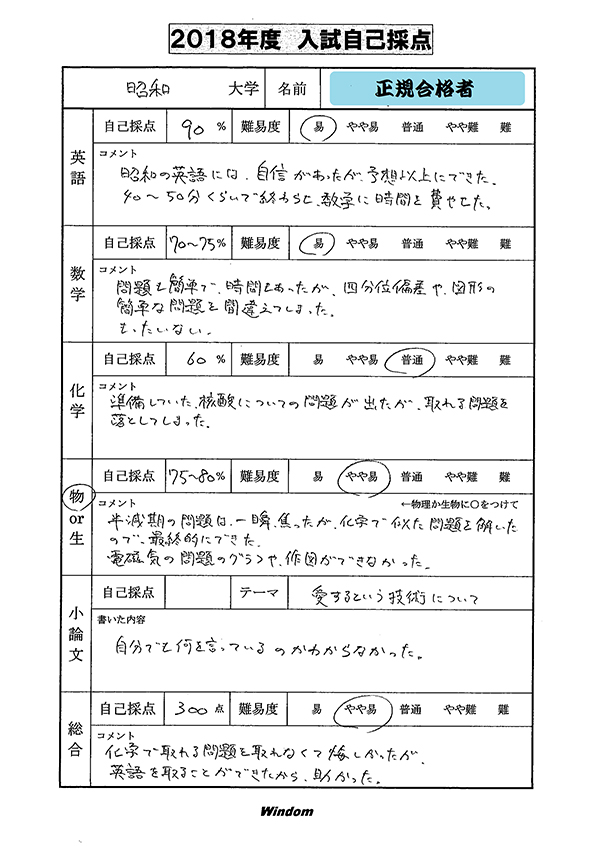 2018年度 入試自己採点
昭和 大学 名前 正規合格者
英語 自己採点 90 % 難易度 易 やや易 普通 やや難 難
コメント
昭和の英語には、自信があったが、予想以上にできた。
40〜50分くらいで終わらせ、数学に時間を費やせた。
数学 自己採点 70〜75% 難易度 易 やや易 普通 やや難 難
コメント
問題も簡単で、時間もあったが、四分位偏差や、図形の
簡単な問題を間違えてしまった。
もったいない。
化学 自己採点 60 % 難易度 易 やや易 普通 やや難 難
コメント
準備していた、核酸についての問題が出たが、取れる問題を
落としてしまった。
物or生 自己採点 75〜80% 難易度 易 やや易 普通 やや難 難
コメント ←物理か生物に〇をつけて
半減期の問題は、一瞬、焦ったが、化学で似た問題を解いた
ので、最終的にできた。
電磁気の問題のグラフや、作図ができなかった。
小論文 自己採点 テーマ 愛するという技術について
書いた内容
自分でも何を言っているのかわからなかった。
総合 自己採点 300 点 難易度 易 やや易 普通 やや難 難
コメント
化学で取れる問題を取れなくて悔しかったが、
英語を取ることができたから、助かった。
Windom